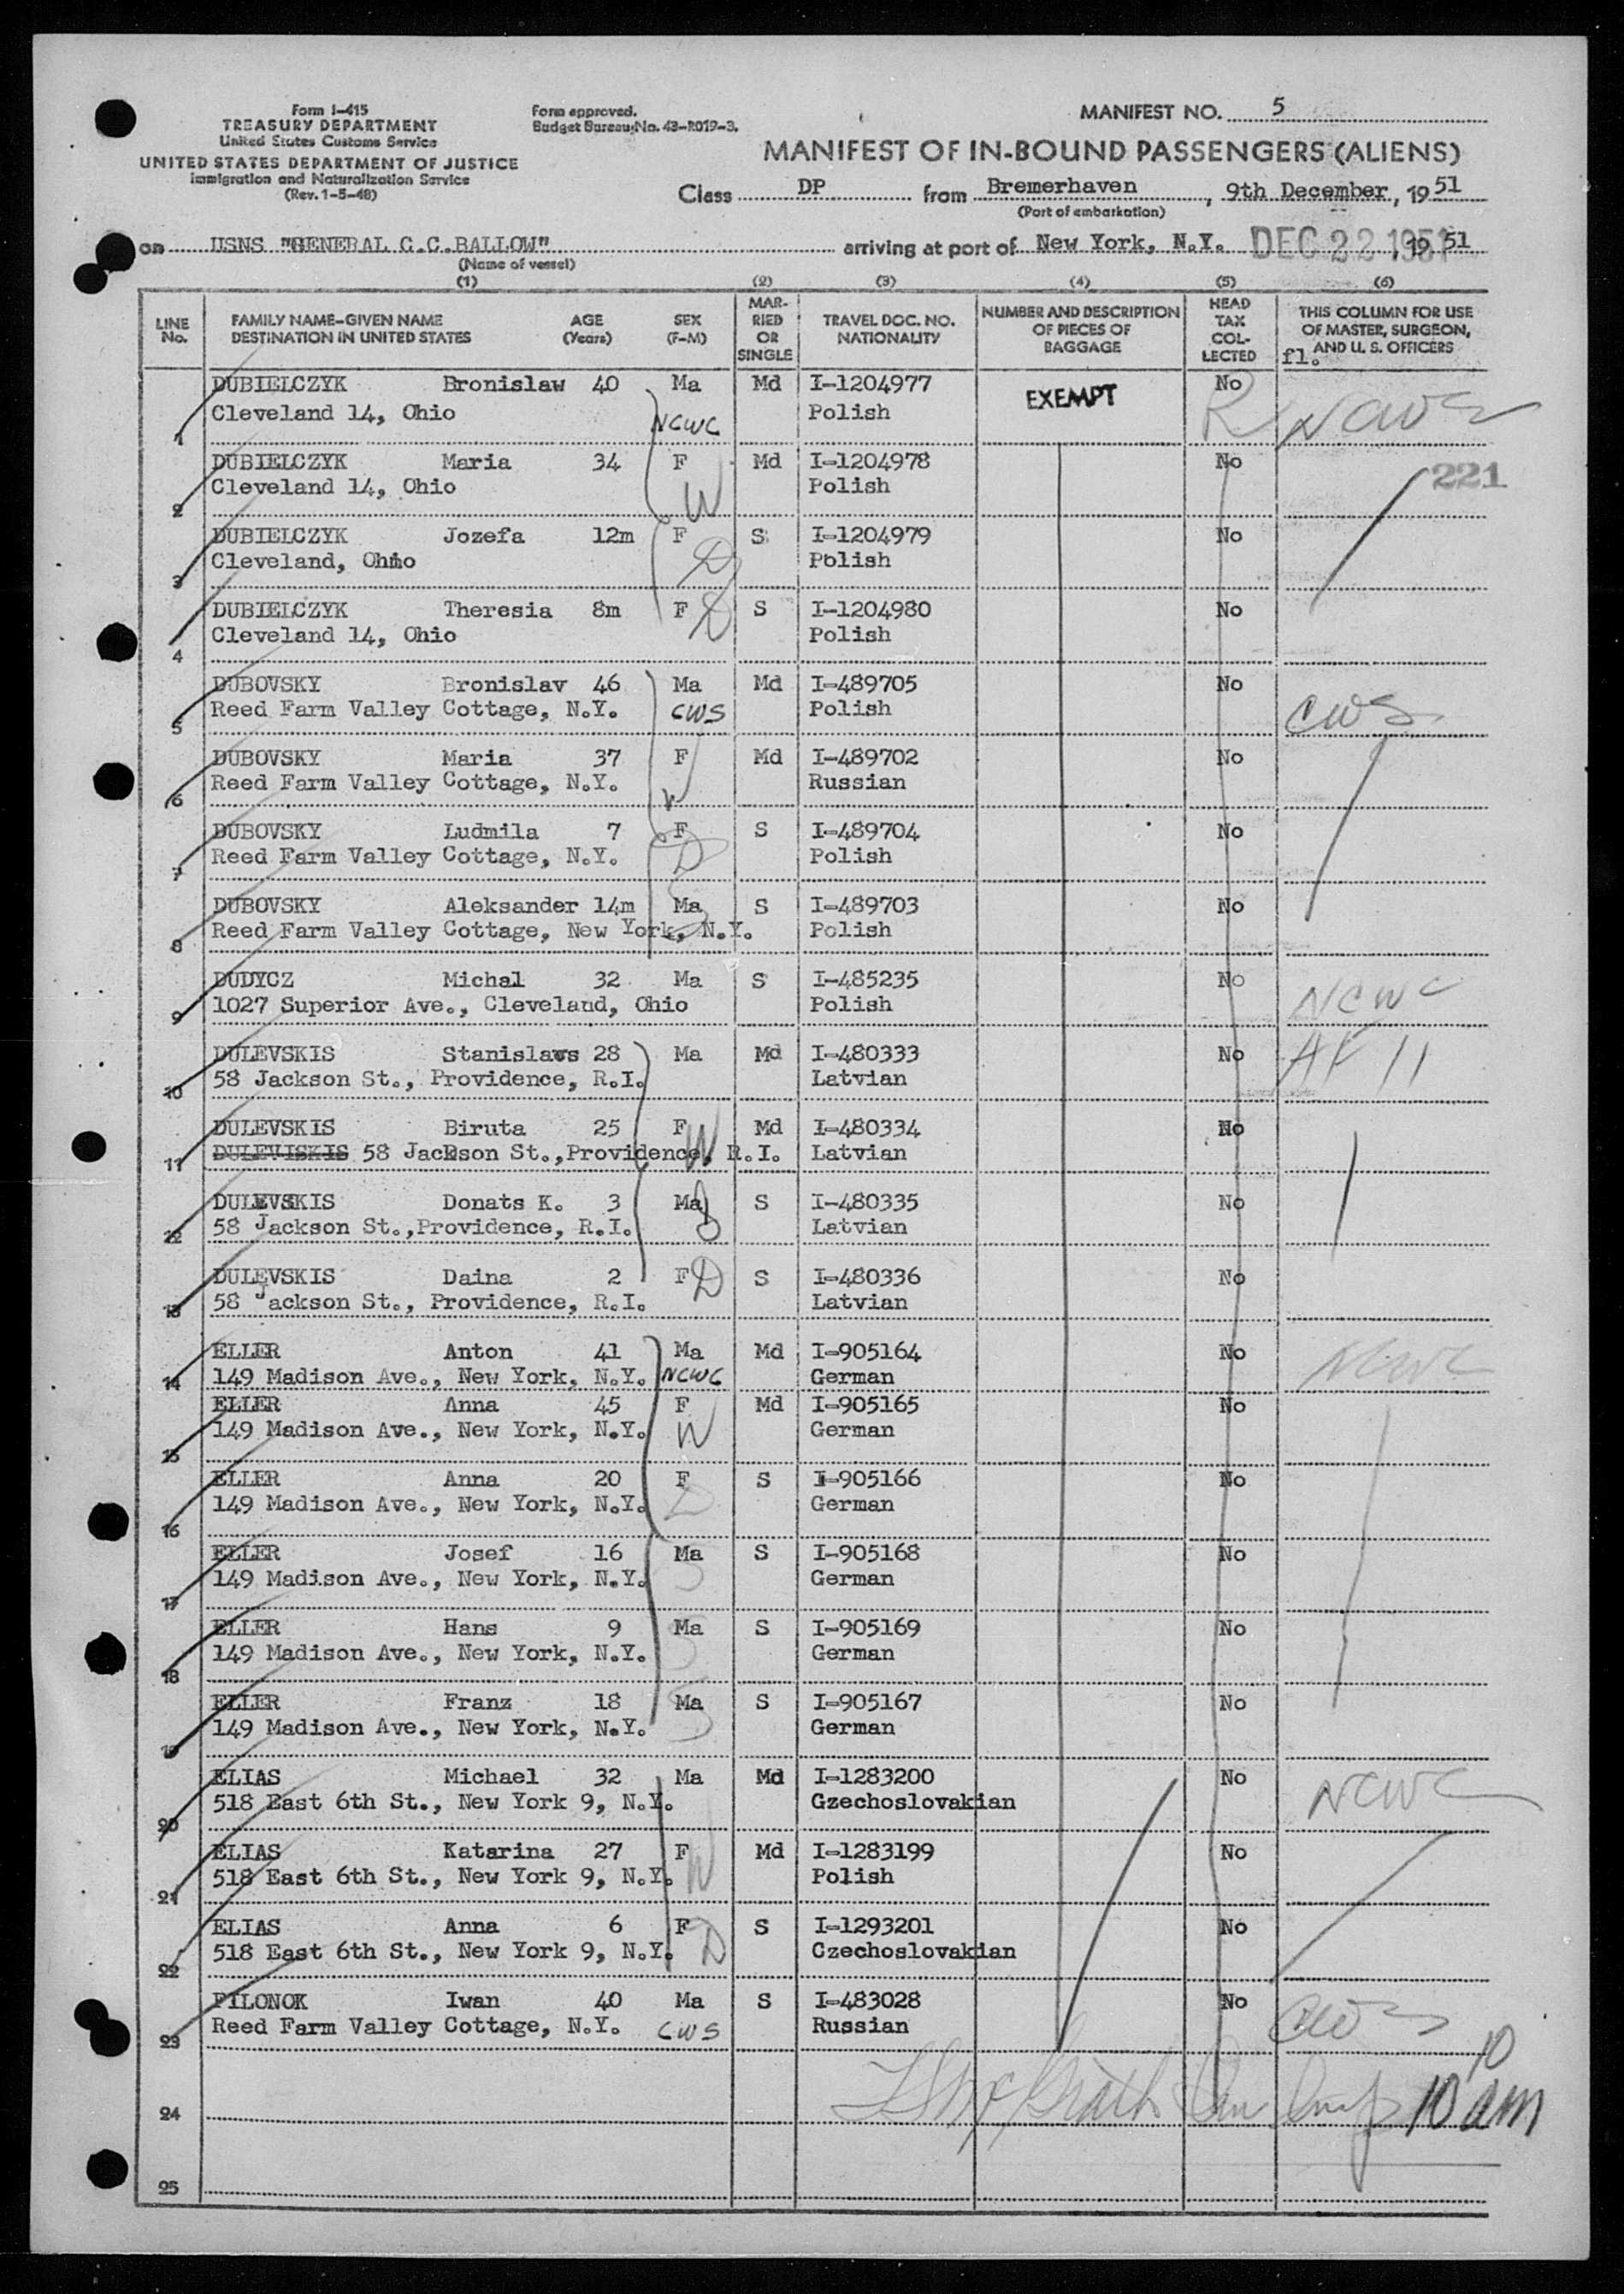 Form I-415
TREASURY DEPARTMENT
United States Customs Service
UNITED STATES DEPARTMENT OF JUSTICE
Immigration and Naturalization Service
(Rev. 1-5-48)
Form approved.
Budget Bureau No. 43-R019-3.
MANIFEST NO. 5
MANIFEST OF IN-BOUND PASSENGERS (ALIENS)
Class DP from Bremerhaven, 9th December, 1951
(Port of embarkation)
on USNS "GENERAL C.C.BALLOW" arriving at port of New York, N.Y. DEC 22 1951, 1951
(Name of vessel)
(1) (2) (3) (4) (5) (6)
LINE No. FAMILY NAME-GIVEN NAME DESTINATION IN UNITED STATES AGE (Years) SEX (F-M) MARRIED OR SINGLE TRAVEL DOC. NO. NATIONALITY NUMBER AND DESCRIPTION OF PIECES OF BAGGAGE HEAD TAX COLLECTED THIS COLUMN FOR USE OF MASTER, SURGEON, AND U. S. OFFICERS
fl.
1 DUBIELCZYK Bronislaw 40 Ma Md I-1204977 EXEMPT No
Cleveland 14, Ohio NCWC Polish R NCWC
2 DUBIELCZYK Maria 34 F Md I-1204978 No 221
Cleveland 14, Ohio W Polish
3 DUBIELCZYK Jozefa 12m F S I-1204979 No
Cleveland, Ohio D Polish
4 DUBIELCZYK Theresia 8m F D S I-1204980 No
Cleveland 14, Ohio Polish
5 DUBOVSKY Bronislav 46 Ma Md I-489705 No
Reed Farm Valley Cottage, N.Y. CWS Polish CWS
6 DUBOVSKY Maria 37 F Md I-489702 No
Reed Farm Valley Cottage, N.Y. W Russian
7 DUBOVSKY Ludmila 7 F S I-489704 No
Reed Farm Valley Cottage, N.Y. D Polish
8 DUBOVSKY Aleksander 14m Ma S I-489703 No
Reed Farm Valley Cottage, New York, N.Y. Polish
9 DUDYCZ Michal 32 Ma S I-485235 No
1027 Superior Ave., Cleveland, Ohio Polish NCWC
10 DULEVSKIS Stanislavs 28 Ma Md I-480333 No AF 11
58 Jackson St., Providence, R.I. Latvian
11 DULEVSKIS Biruta 25 F W Md I-480334 No
DULEVISKIS 58 Jackson St.,Providence, R.I. Latvian
12 DULEVSKIS Donats K. 3 Ma S I-480335 No
58 Jackson St.,Providence, R.I. Latvian
13 DULEVSKIS Daina 2 F D S I-480336 No
58 Jackson St., Providence, R.I. Latvian
14 ELLER Anton 41 Ma Md I-905164 No
149 Madison Ave., New York, N.Y. NCWC German NCWC
15 ELLER Anna 45 F Md I-905165 No
149 Madison Ave., New York, N.Y. W German
16 ELLER Anna 20 F S I-905166 No
149 Madison Ave., New York, N.Y. D German
17 ELLER Josef 16 Ma S I-905168 No
149 Madison Ave., New York, N.Y. S German
18 ELLER Hans 9 Ma S I-905169 No
149 Madison Ave., New York, N.Y. S German
19 ELLER Franz 18 Ma S I-905167 No
149 Madison Ave., New York, N.Y. S German
20 ELIAS Michael 32 Ma Md I-1283200 No
518 East 6th St., New York 9, N.Y. Gzechoslovakian NCWC
21 ELIAS Katarina 27 F Md I-1283199 No
518 East 6th St., New York 9, N.Y. W Polish
22 ELIAS Anna 6 F S I-1293201 No
518 East 6th St., New York 9, N.Y. D Czechoslovakian
23 PILONOK Iwan 40 Ma S I-483028 No
Reed Farm Valley Cottage, N.Y. CWS Russian CWS
10
24 10 am
25